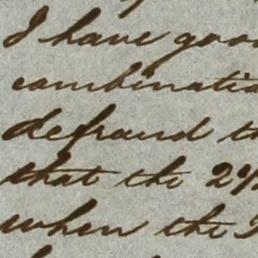 I have good
combinatio
defraud th
that the 2
when the